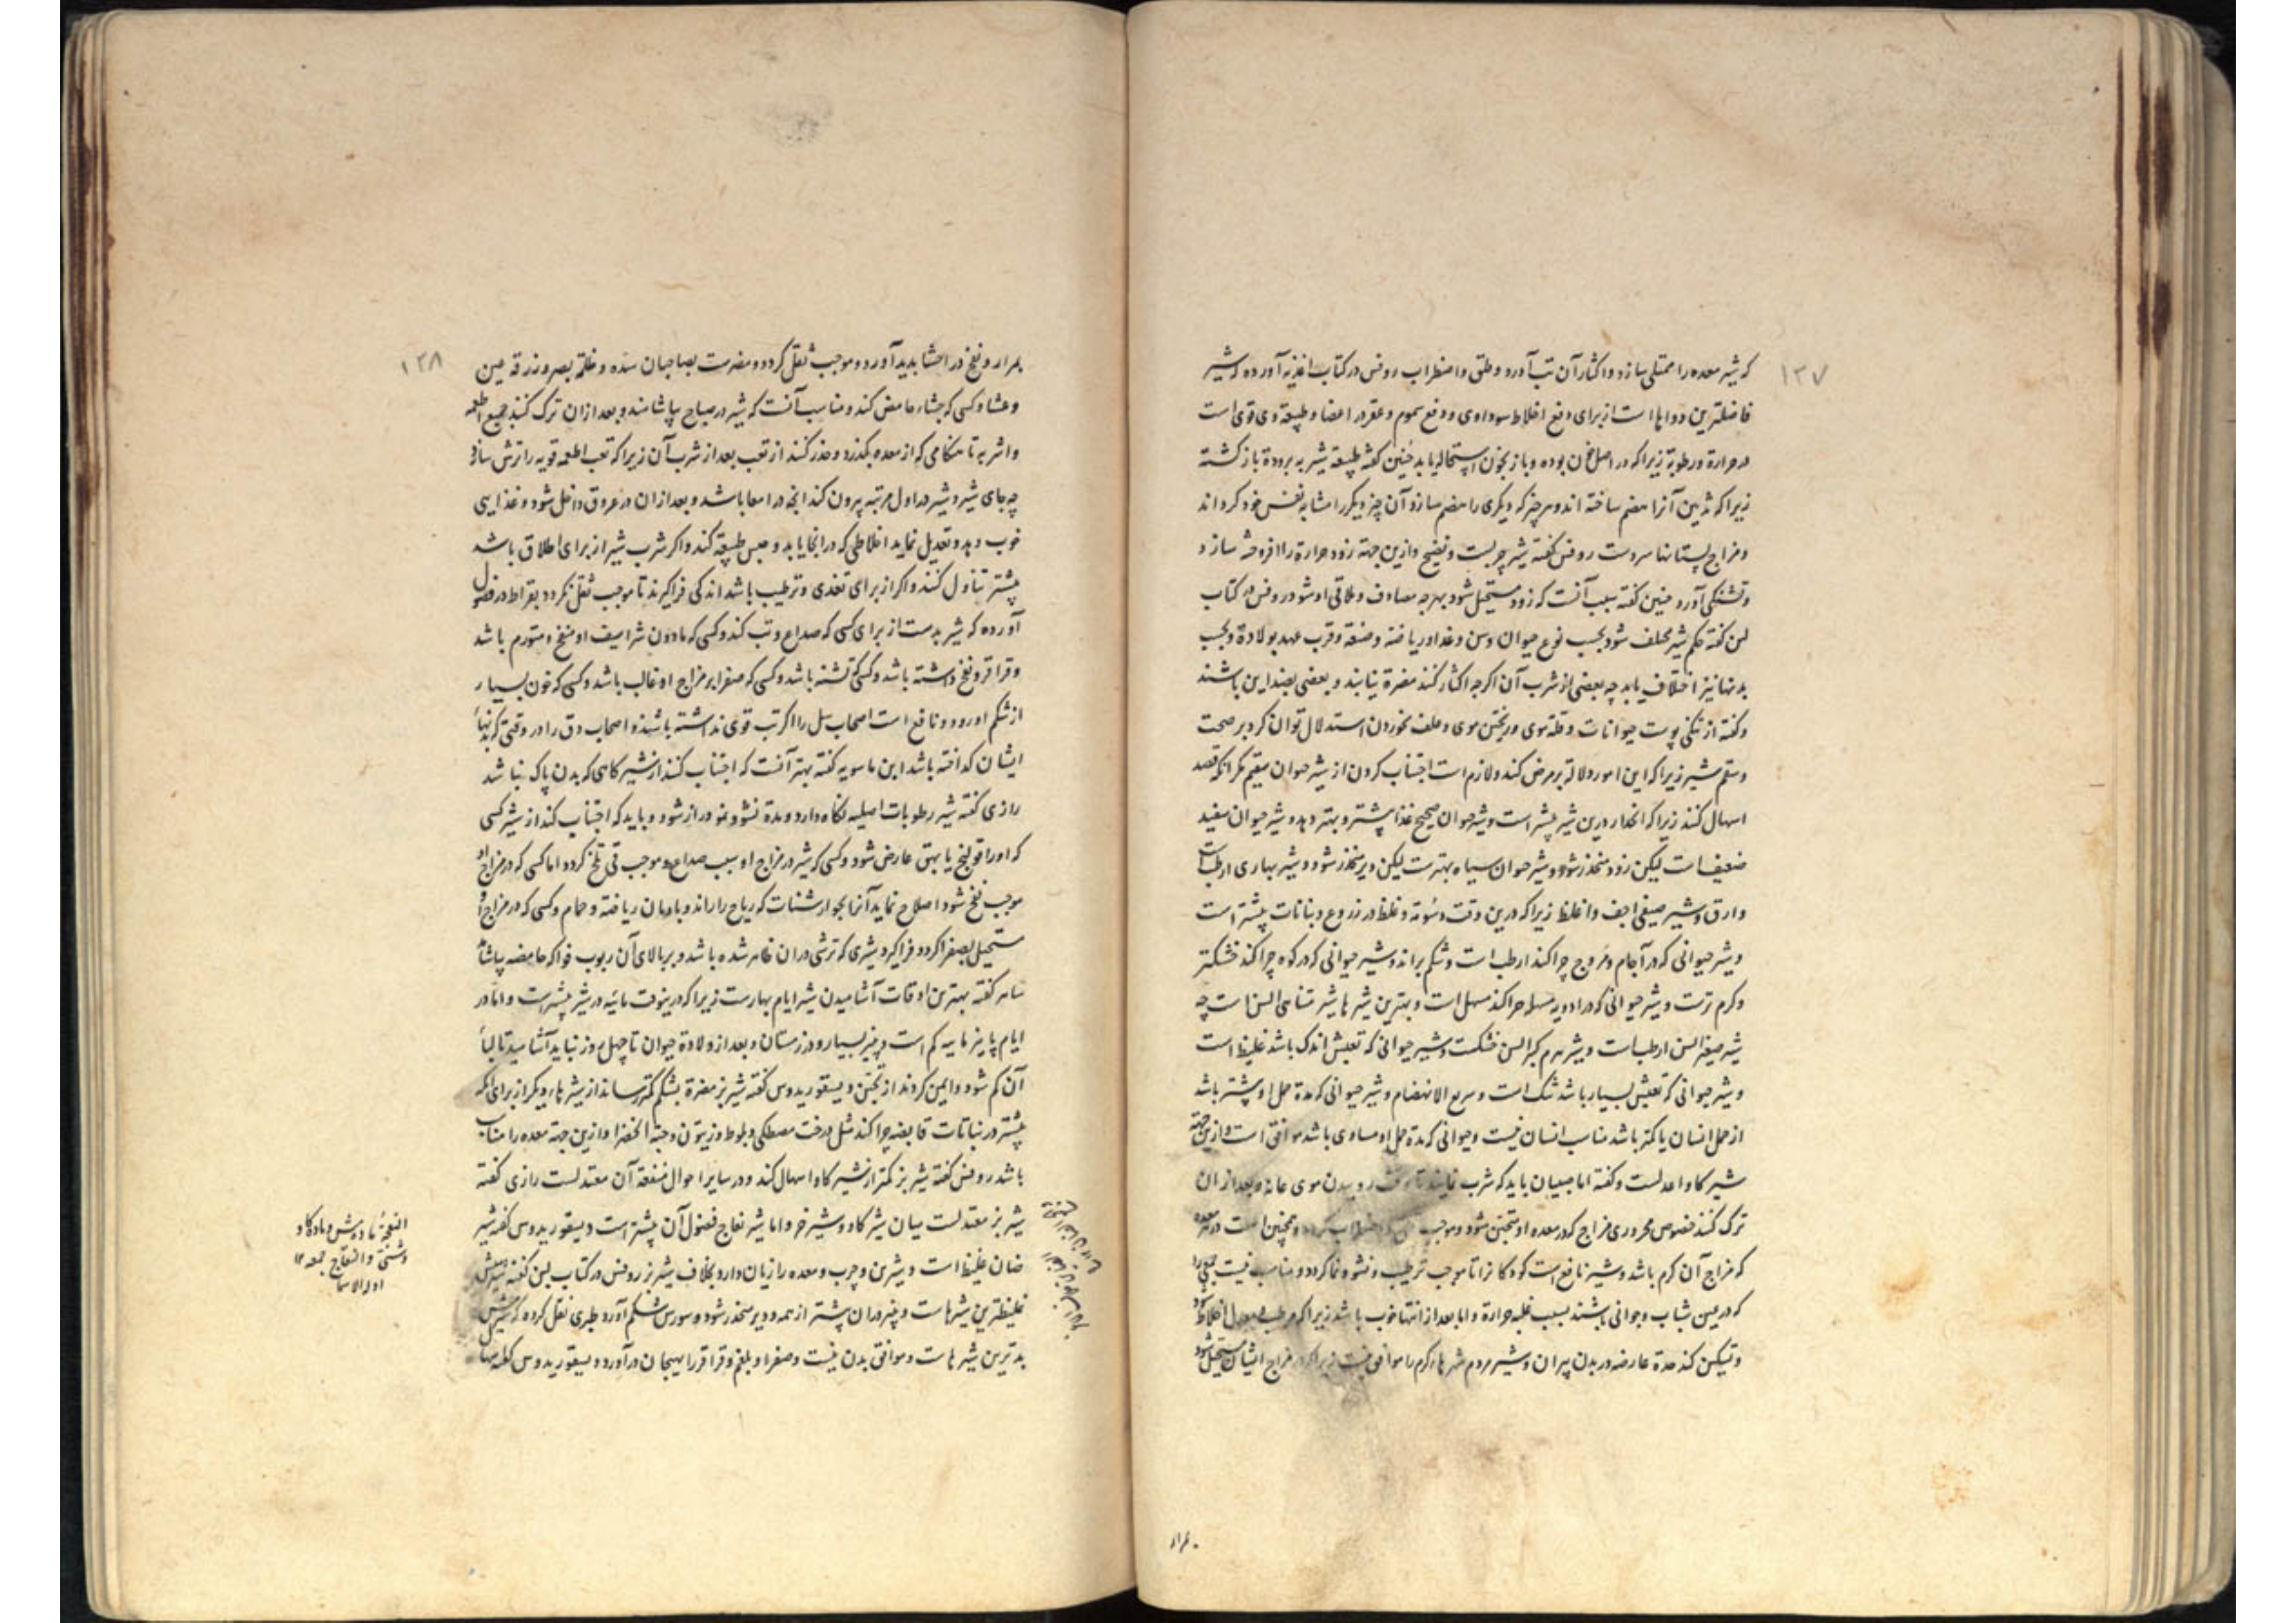 ۱۳۷
که شیر معده را ممتلی سازد و اکثار آن تب آورد و قلق و اضطراب روفس در کتاب اغذیه آورده که شیر
فاضلترین دواها است از برای دفع اخلاط سوداوی و دفع سموم و عقر در اعضا و طبیعة وی قوی است
در حرارة و رطوبة زیرا که در اصل خون بوده و باز بخون استحاله یابد حنین گفته طبیعة شیر به برودة بازگشته
زیرا که ثدیین آنرا هضم ساخته اند و هر چیز که دیگری را هضم سازد آن چیز دیگر را مشابه نفس خود گرداند
و مزاج پستانها سردست روفس گفته شیر چربست و نضیج و ازین جهة زود حرارة را افروخته سازد
و تشنگی آورد حنین گفته سبب آنست که زود مستحیل شود بهرچه مصادف و ملاقی او شود روفس در کتاب
لبن گفته حکم شیر مختلف شود بحسب نوع حیوان و سن و غذا و ریاضة و صنعة و قرب عهد بولادة و بحسب
بدنها نیز اختلاف یابد چه بعضی از شرب آن اگرچه اکثار کنند مضرة نیابند و بعضی بضد این باشند
و گفته از تنگی پوست حیوانات و قلة موی و ریختن موی و علف نخوردن استدلال توان کرد بر صحت
و سقم شیر زیرا که این امور دلالة بر مرض کند و لازم است اجتناب کردن از شیر حیوان سقیم مگر آنکه قصد
اسهال کنند زیرا که انحدار درین شیر بیشتر است و شیر حیوان صحیح غذا بیشتر و بهتر دهد و شیر حیوان سفید
ضعیف است لیکن زود منحدر شود و شیر حیوان سیاه بهترست لیکن دیر منحدر شود و شیر بهاری ارطب است
و ارق و شیر صیفی اجف و اغلظ زیرا که درین وقت و غلظ در زروع و نباتات بیشتر است
و شیر حیوانی که در آجام و مروج چرا کند ارطب است و شکم براند و شیر حیوانی که در کوه چرا کند خشکتر
و گرم ترست و شیر حیوانی که در ادویه مسهله چرا کند مسهل است و بهترین شیرها شیر متناهی السن است چه
شیر صغیر السن ارطب است و شیر هرم کبیر السن خشکست و شیر حیوانی که تعبش اندک باشد غلیظ است
و شیر حیوانی که تعبش بسیار باشد تنک است و سریع الانهضام و شیر حیوانی که مدة حمل او بیشتر باشد
از حمل انسان یا کمتر باشد مناسب انسان نیست و حیوانی که مدة حمل او مساوی باشد موافق است و ازین جهة
شیر گاو اعدلست و گفته اما صبیان باید که شرب نمایند تا وقت روییدن موی عانه و بعد از ان
ترک کنند خصوص محروری مزاج که در معده او متجبن شود و موجب و اضطراب گردد و همچنین است در هر معده
که مزاج آن گرم باشد و شیر نافع است کودکانرا تا موجب ترطیب و نشو و نما گردد و مناسب نیست جمعی را
که در سن شباب و جوانی باشند بسبب غلبه حرارة و اما بعد از انتها خوب باشد زیرا که مرطب و معدل اخلاط
و تسکین کند حدة عارضه در بدن پیران و شیر مردم شهرهاء گرم را موافق نیست زیرا که در مزاج ایشان مستحیل شود
بمرار
۱۳۸
بمرار و نفخ در احشا بدید آورد و موجب ثقل گردد و مضرست بصاحبان سده و ظلمة بصر و زرقه عین
و عشا و کسی که جشاء حامض کند و مناسب آنست که شیر در صباح بیاشامند و بعد از ان ترک کنند جمیع اطعمه
و اشربه تا هنگامی که از معده بگذرد و حذر کنند از تعب بعد از شرب آن زیرا که تعب اطعمه قویه را ترش سازد
چه جای شیر و شیر در اول مرتبه بیرون کند آنچه در امعا باشد و بعد از ان در عروق داخل شود و غذایی
خوب دهد و تعدیل نماید اخلاطی که در آنجا یابد و حبس طبیعة کند و اگر شرب شیر از برای اطلاق باشد
بیشتر تناول کنند و اگر از برای تغذی و ترطیب باشد اندکی فراگیرند تا موجب ثقل نگردد بقراط در فصول
آورده که شیر بدست از برای کسی که صداع و تب کند و کسی که مادون شراسیف او منتفخ و متورم باشد
و قراقر و نفخ داشته باشد و کسی که تشنه باشد و کسی که صفرا بر مزاج او غالب باشد و کسی که خون بسیار
از شکم او رود و نافع است اصحاب سل را اگر تب قوی نداشته باشند و اصحاب دق را در وقتی که تنهاء
ایشان گداخته باشد ابن ماسویه گفته بهتر آنست که اجتناب کنند از شیر گاهی که بدن پاک نباشد
رازی گفته شیر رطوبات اصلیه نگاه دارد و مدة نشو و نمو دراز شود و باید که اجتناب کند از شیر کسی
که او را قولنج یا بهق عارض شود و کسی که شیر در مزاج او سبب صداع و موجب قی تلخ گردد اما کسی که در مزاج او
موجب نفخ شود اصلاح نماید آنرا بجوارشنات که ریاح را براند و بادمان ریاضة و حمام و کسی که در مزاج او
مستحیل بصفرا گردد فراگیرد شیری که ترشی در ان ظاهر شده باشد و بر بالای آن ربوب فواکه حامضه بیاشامد
گفته بهترین اوقات آشامیدن شیر ایام بهارست زیرا که درینوقت مائیه در شیر بیشترست و اما در
ایام پاییز مائیه کم است و پنیر بسیار و در زمستان و بعد از ولادة حیوان تا چهل روز نباید آشامید تا لباء
آن کم شود و ایمن گردند از تجبن دیسقوریدوس گفته شیر بز مضرة بشکم کمتر رساند از شیرهاء دیگر از برای آنکه
بیشتر در نباتات قابضه چرا کند مثل درخت مصطکی و بلوط و زیتون و حبة الخضرا و ازین جهة معده را مناسب
باشد روفس گفته شیر بز کمتر از شیر گاو اسهال کند و در سایر احوال منفعة آن معتدلست رازی گفته
شیر بز معتدلست میان شیر گاو و شیر خر و اما شیر نعاج فضول آن بیشتر است دیسقوریدوس گفته شیر
ضان غلیظ است و شیرین و چرب و معده را زیان دارد بخلاف شیر بز روفس در کتاب لبن گفته شیر میش
غلیظترین شیرهاست و پنیر در ان بیشتر از همه و دیر منحدر شود و سورش شکم آورد طبری نقل کرده که شیر میش
بدترین شیرهاست و موافق بدن نیست و صفرا و بلغم و قراقر را بهیجان در آورد دیسقوریدوس گفته شیر
النعجة مادهٔ میش و ماده گاو
دشتی و النعاج جمعه ۱۲